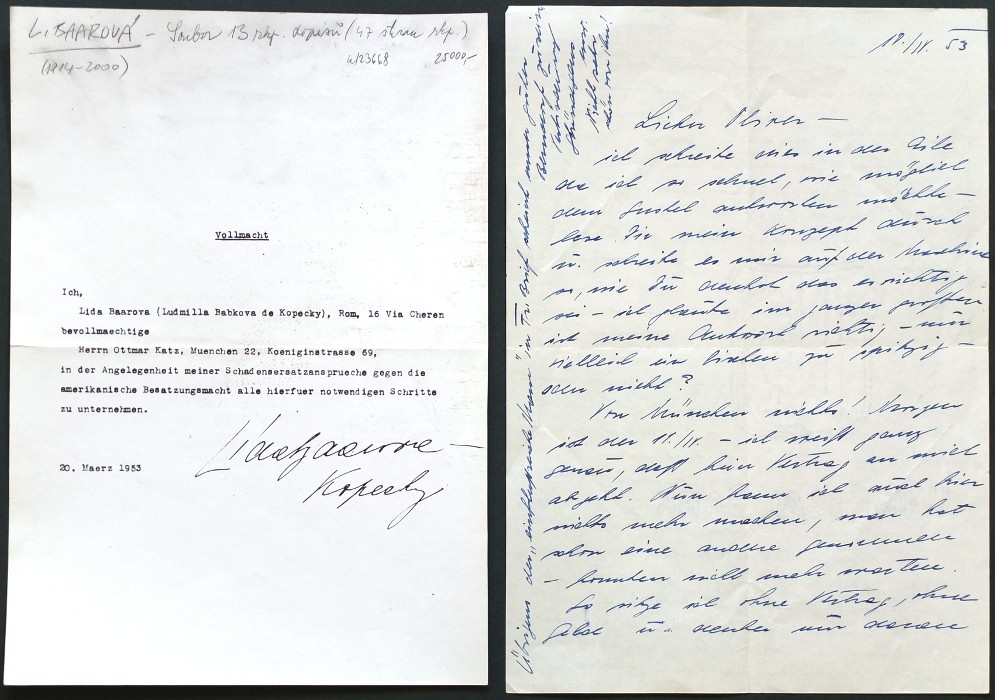 L. BAAROVÁ – Soubor 13 rkp. dopisů (47 stran rkp.)
(1914–2000)
25000,-
Vollmacht
Ich,
Lida Baarova (Ludmilla Babkova de Kopecky), Rom, 16 Via Cheren
bevollmaechtige
Herrn Ottmar Katz, Muenchen 22, Koeniginstrasse 69,
in der Angelegenheit meiner Schadensersatzansprueche gegen die
amerikanische Besatzungsmacht alle hierfuer notwendigen Schritte
zu unternehmen.
Lida Baarova –
Kopecky
20. Maerz 1953
53
Lieber
ich schreibe dies in der Eile
da ich so schnel, wie möglich
dem Gustel antworten möchte –
lese Dir mein Konzept durch
u. schreibe es mir auf der Maschine
so, wie Du denkst das es richtig
sei – ich glaube im ganzen großen
ist meine Antwort richtig, – nur
vielleich ein bischen zu spitzig –
oder nicht?
Von München nichts! Morgen
ist der – ich weiß ganz
genau, daß kein Vertrag an mich
abgeht. Nun kann ich auch hier
nichts mehr machen, man hat
schon eine andere genommen
– konnten nicht mehr warten.
So sitze ich ohne Vertrag, ohne
Geld u. denke nur daran
Übrigens der „einflußreiche Mann" in Brief scheint unser guter